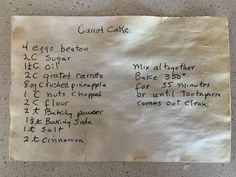 Carrot Cake
4 eggs beaten
2 C Sugar
1½ C Oil
2 C grated carrots
8 oz Crushed pineapple
1 C nuts chopped
2 C flour
2 t Baking powder
1½ t Baking Soda
1 t Salt
2 t Cinnamon
Mix al together
Bake 350°
for 35 minutes
or until Toothpick
comes out clean